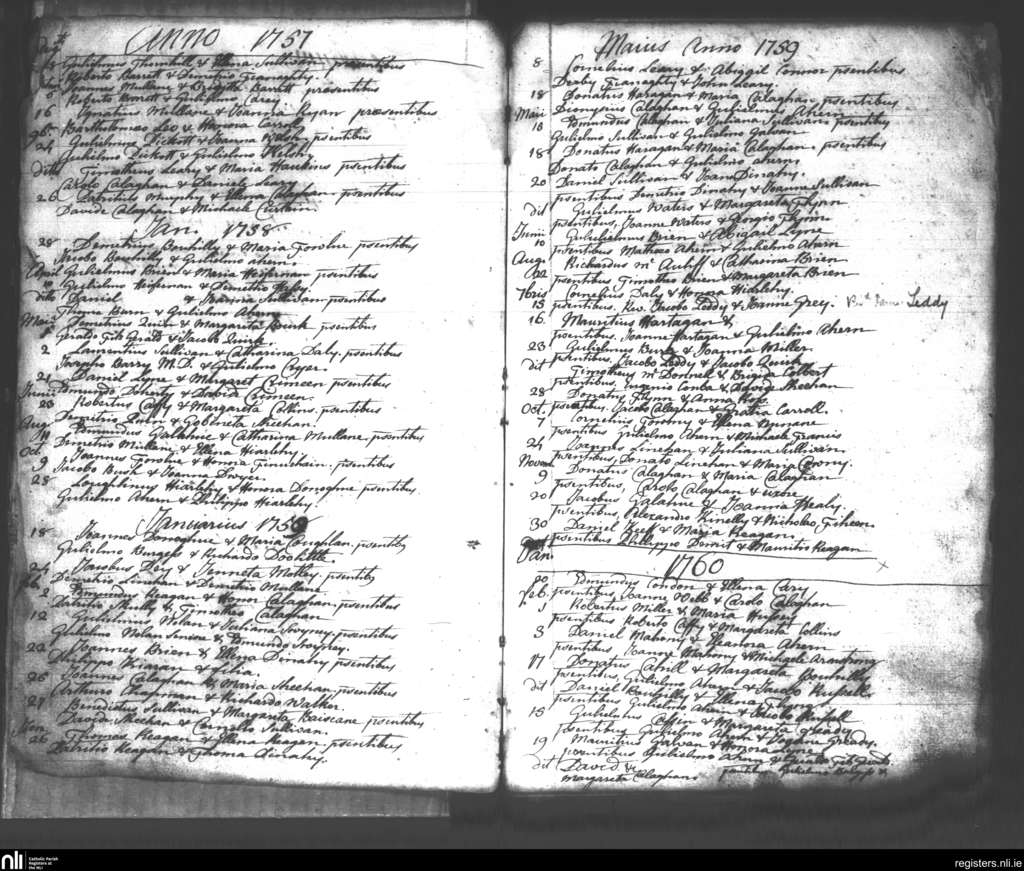 Anno 1757
Gulielmus Thornhill & Ellena Sullivan presentibus
Roberto Barrett & Demetrio Franaghty.
Joannes Mullane & Brigitta Barrett præsentibus
Roberto Barrett & Gulielmo Carey
16 Ignatius Mullane & Joanna Ryan præsentibus
Bartholomeo Leo & Honora Carroll
24 Gulielmus Pickott & Joanna Walsh psentibus
Gulielmo Pickott & Gulielmo Welsh
ditto Timotheus Leary & Maria Hawkins psentibus
Carolo Calaghan & Daniele Leary
26 Patritius Murphy & Ellena Calaghan psentibus
Davide Calaghan & Michaele Curtain.
Jan. 1758
28 Demetrius Bouhilly & Maria Donohue psentibus
Jacobo Bouhilly & Gulielmo Ahern
April Gulielmus Brien & Maria Heffernan psentibus
10 Gulielmo Heffernan & Demetrio
ditto Daniel & Joanna Sullivan psentibus
Thoma Barn & Gulielmo Ahern
Maii Demetrius Quirk & Margarita Rourk psentibus
Geraldo Fitz Gerald & Jacobo Quirk.
2 Laurentius Sullivan & Catharina Daly psentibus
Josepho Barry M.D. & Gulielmo Cryer.
21 Daniel Lyne & Margaret Crimeen psentibus
Junii Edmundo Doherty & David Crimeen.
23 Robertus Caffy & Margareta Collins psentibus
Aug. Demetrio Quin & Gobeneta Sheehan.
Edmundus Galahue & Catharina Mullane psentibus
Oct. Demetrio Mullane & Ellena Hiarlehy
9 Joannes Donohue & Honora psentibus
Jacobo Buck & Joanna Dwyer.
28 Loughlinus Hiarlehy & Honora Donoghue psentibus
Gulielmo Ahern & Philippo Hiarlehy
Januarius 1759
18 Joannes Donoghue & Maria Coughlan psentibus
Gulielmo Burgess & Richardo Doolittle.
24 Jacobus Dey & Jennetta Motley psentibus
Feb. Demetrio Linehan & Demetrio Mullane
2 Edmundus Reagan & Honor Calaghan psentibus
Patritio Skully & Timotheo Calaghan
12 Gulielmus Nolan & Juliana Swyney psentibus
Gulielmo Nolan Seniore & Edmundo Swyney.
22 Joannes Brien & Ellena Dinahy psentibus
Philippo Kiaran & filia.
26 Joannes Calaghan & Maria Sheehan psentibus
Arthuro Chapman & Richardo Walker.
27 Benedictus Sullivan & Margarita Baiseane psentibus
Davide Sheehan & Cornelio Sullivan.
26 Thomas Reagan & Ellena Reagan psentibus
Patritio Reagan & Thoma Dinahy.
Maius Anno 1759
8 Cornelius Leary & Abigail Connor psentibus
Derby Franaghty & John Leary.
18 Donatus Haragan & Maria Calaghan psentibus
Maii Dionysius Calaghan & Gulielmus Ahern
18 Edmundus Calaghan & Juliana Sullivan psentibus
Gulielmo Sullivan & Gulielmo Galwan
18 Donatus Haragan & Maria Calaghan psentibus
Donato Calaghan & Gulielmo Ahern.
20 Daniel Sullivan & Joan Dinahy.
psentibus Demetrio Dinahy & Joanne Sullivan
dit Gulielmus Waters & Margareta Flynn
psentibus, Joanne Waters & Georgio Flynn
Junii Gulielmus Brien & Abigail Lyne
10 psentibus Matheo Ahern & Gulielmo Ahern
Aug. Richardus Mc Auliff & Catharina Brien
psentibus Timotheo Brien & Margareta Brien
7bris Cornelius Daly & Honora Hiarlehy.
15 psentibus. Rev. Jacobo Leddy & Joanne Grey. Leddy
16. Mauritius Hartagan &
psentibus, Joanne Hartagan & Gulielmo Ahern
23 Gulielmus Burk & Joanna Miller
psentibus, Jacobo Leddy & Jacobo Quirk.
dit Timotheus Mc Donnell & Brigida Colbert
psentibus, Eugenio Conba & David Sheehan
28 Donatus Flynn & Anna Roy
Oct. psentibus, Jacobo Calaghan & Gratia Carroll.
7 Cornelius Toomy & Ellena Nunane
psentibus Gulielmo Ahern & Michaele Francis
24 Joannes Linehan & Juliana Sullivan
Novem psentibus, Donato Linehan & Maria
9 Donatus Calaghan & Maria Calaghan
psentibus, Carolo Calaghan & uxore
20 Jacobus Galahue & Joanna Healy.
psentibus, Alexandro Kinelly & Nicholao
30 Daniel Keeff & Maria Reagan
psentibus Philippo Dermit & Mauritio Reagan
Jan. 1760
20 Edmundus Condon & Ellena Cary
Feb. psentibus, Joanne Webb & Carolo Calaghan
1 Robertus Miller & Maria Hussey
psentibus Roberto Caffy & Margareta Collins
3 Daniel Mahony & Eleanora Ahern
psentibus, Joanne Mahony & Michaele Armstrong
17 Donatus Cahill & Margareta Bouhilly
psentibus, Gulielmo Ahern & Jacobo Russell
dit Daniel Bouhilly & Ellena Flynn
psentibus Gulielmo Ahern & Jacobo Russell
18 Gulielmus & Margareta Gready
psentibus Gulielmo Ahern & Joanne Gready.
19 Mauritius Galwan & Honora Lyne
psentibus Gulielmo Ahern & Geraldo Fitz Gerald
dit David &
Margareta Calaghan psentibus Gulielmo &
nli
Catholic Parish
Registers at
the NLI
registers.nli.ie